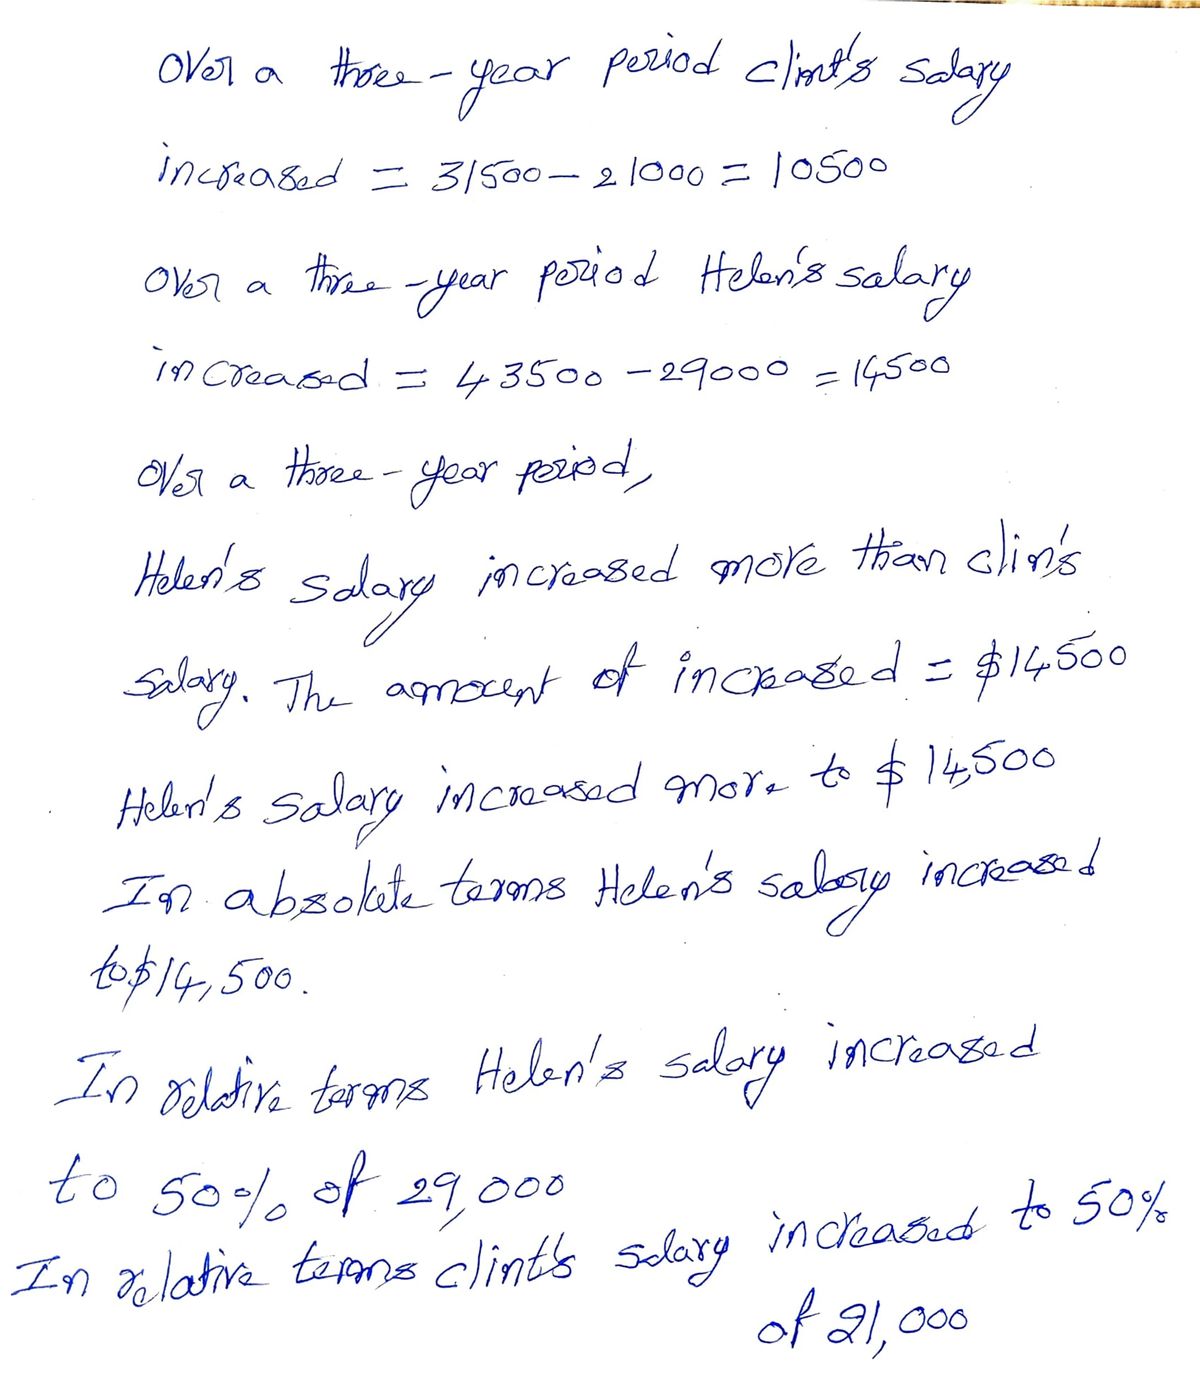 Over a three-year period clint's salary
increased = 31500-21000 = 10500
Over a three-year period Helen's salary
increased = 43500-29000 = 14500
Over a three-year period,
Helen's salary increased more than clin's
salary. The amocent of increased = $14500
Helen's salary increased more to $14,500
In absolute terms Helen's salary increased
to $14,500.
In relative terms Helen's salary increased
to 50% of 29,000
In relative terms clint's salary increased to 50%
of 21,000